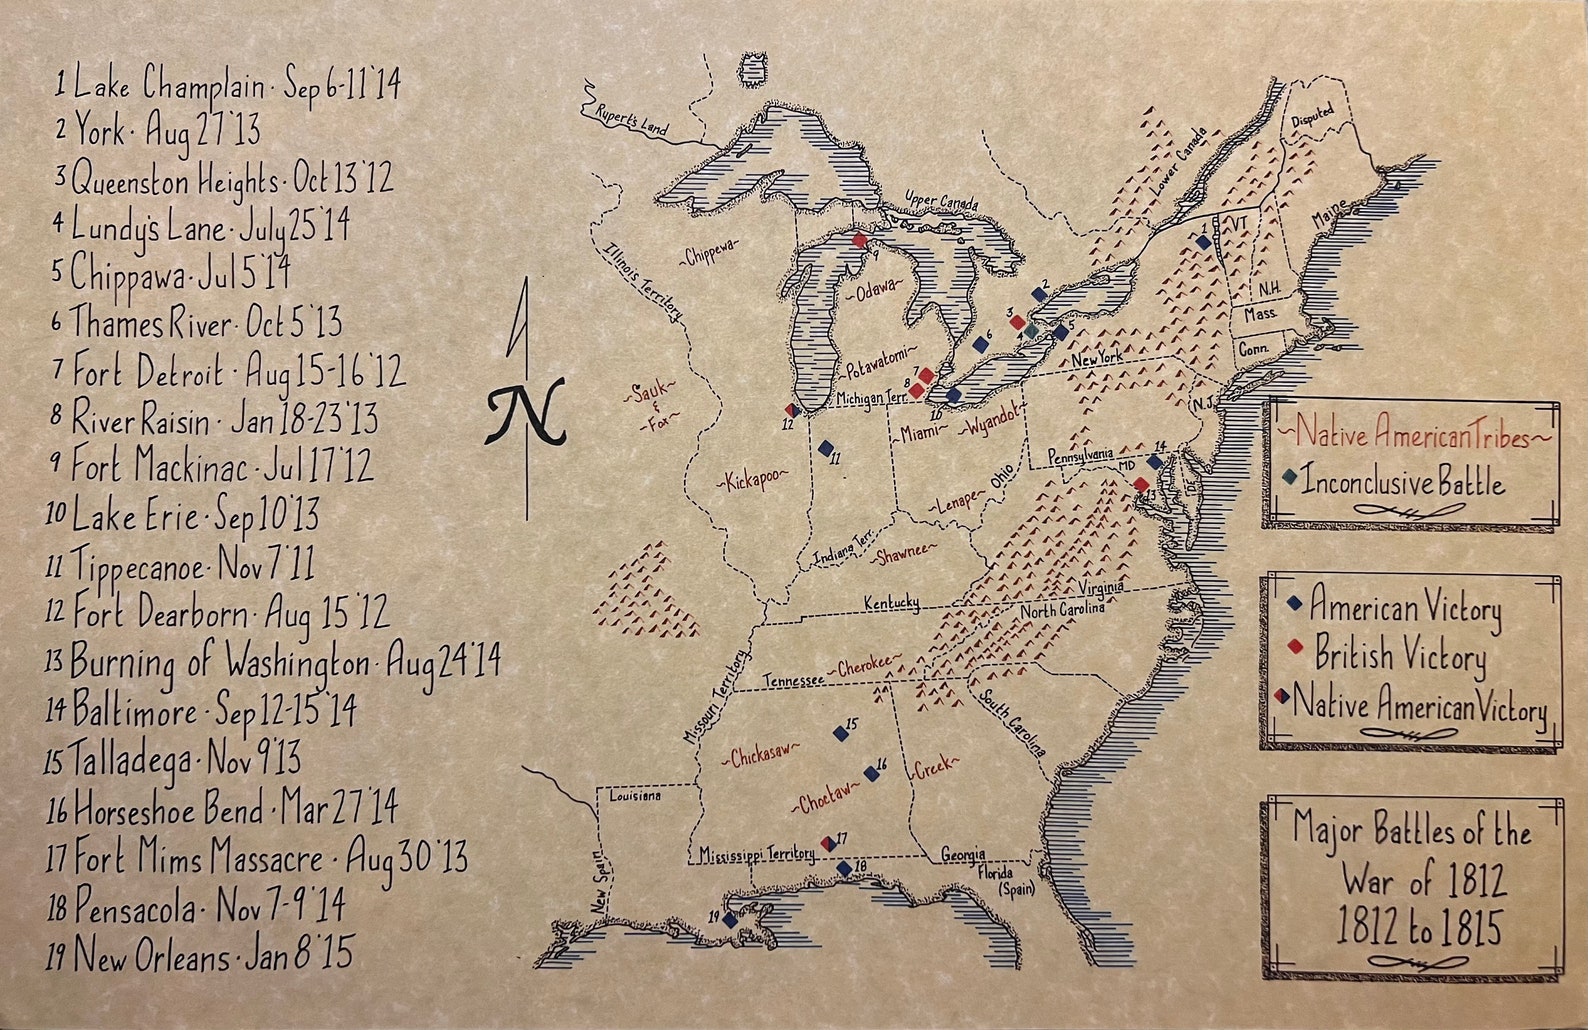 1 Lake Champlain · Sep 6-11 '14
2 York · Aug 27 '13
3 Queenston Heights · Oct 13 '12
4 Lundy's Lane · July 25 '14
5 Chippawa · Jul 5 '14
6 Thames River · Oct 5 '13
7 Fort Detroit · Aug 15-16 '12
8 River Raisin · Jan 18-23 '13
9 Fort Mackinac · Jul 17 '12
10 Lake Erie · Sep 10 '13
11 Tippecanoe · Nov 7 '11
12 Fort Dearborn · Aug 15 '12
13 Burning of Washington · Aug 24 '14
14 Baltimore · Sep 12-15 '14
15 Talladega · Nov 9 '13
16 Horseshoe Bend · Mar 27 '14
17 Fort Mims Massacre · Aug 30 '13
18 Pensacola · Nov 7-9 '14
19 New Orleans · Jan 8 '15
N
Rupert's Land
Upper Canada
Lower Canada
Disputed
Maine
VT
N.H.
Mass.
Conn.
New York
N.J.
Pennsylvania
MD
DE
Illinois Territory
~Chippewa~
~Odawa~
~Potawatomi~
Michigan Terr.
~Sauk~
&
~Fox~
~Miami~
~Wyandot~
Ohio
~Kickapoo~
~Lenape~
Indiana Terr.
~Shawnee~
Kentucky
Virginia
North Carolina
~Cherokee~
Tennessee
South Carolina
Missouri Territory
~Chickasaw~
~Choctaw~
~Creek~
Louisiana
New Spain
Mississippi Territory
Georgia
Florida
(Spain)
1
2
3
4
5
6
7
8
9
10
11
12
13
14
15
16
17
18
19
~Native American Tribes~
Inconclusive Battle
American Victory
British Victory
Native American Victory
Major Battles of the
War of 1812
1812 to 1815